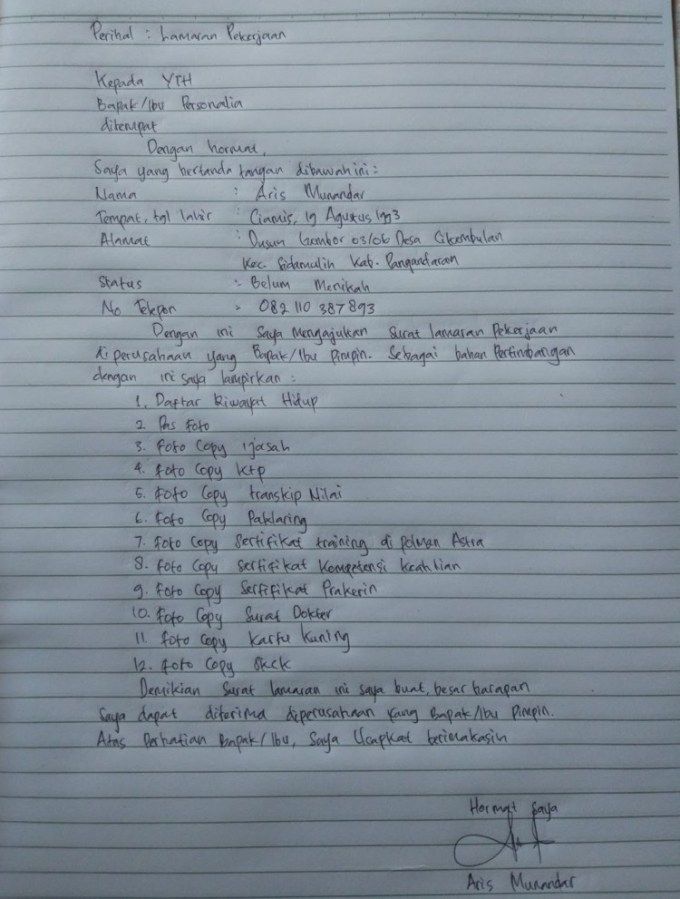 Perihal : Lamaran Pekerjaan
Kepada YTH
Bapak/Ibu Personalia
ditempat
Dengan hormat,
Saya yang bertanda tangan dibawah ini :
Nama : Aris Munandar
Tempat, tgl lahir : Ciamis, 19 Agustus 1993
Alamat : Dusun Gembor 03/06 Desa Cikembulan
Kec. Sidamulih Kab. Pangandaran
Status : Belum Menikah
No Telepon : 082 110 387 893
Dengan ini Saya Mengajukan Surat lamaran Pekerjaan
diperusahaan yang Bapak/Ibu Pimpin. Sebagai bahan Pertimbangan
dengan ini saya lampirkan :
1. Daftar Riwayat Hidup
2. Pas Foto
3. Foto Copy Ijasah
4. Foto Copy KTP
5. Foto Copy transkip Nilai
6. Foto Copy Paklaring
7. Foto Copy Sertifikat training di polman Astra
8. Foto Copy Sertifikat Kompetensi Keahlian
9. Foto Copy Sertifikat Prakerin
10. Foto Copy Surat Dokter
11. Foto Copy Kartu Kuning
12. Foto Copy SKCK
Demikian Surat lamaran ini saya buat, besar harapan
Saya dapat diterima diperusahaan yang Bapak/Ibu Pimpin.
Atas Perhatian Bapak/Ibu, Saya Ucapkat terimakasih
Hormat Saya
Aris Munandar